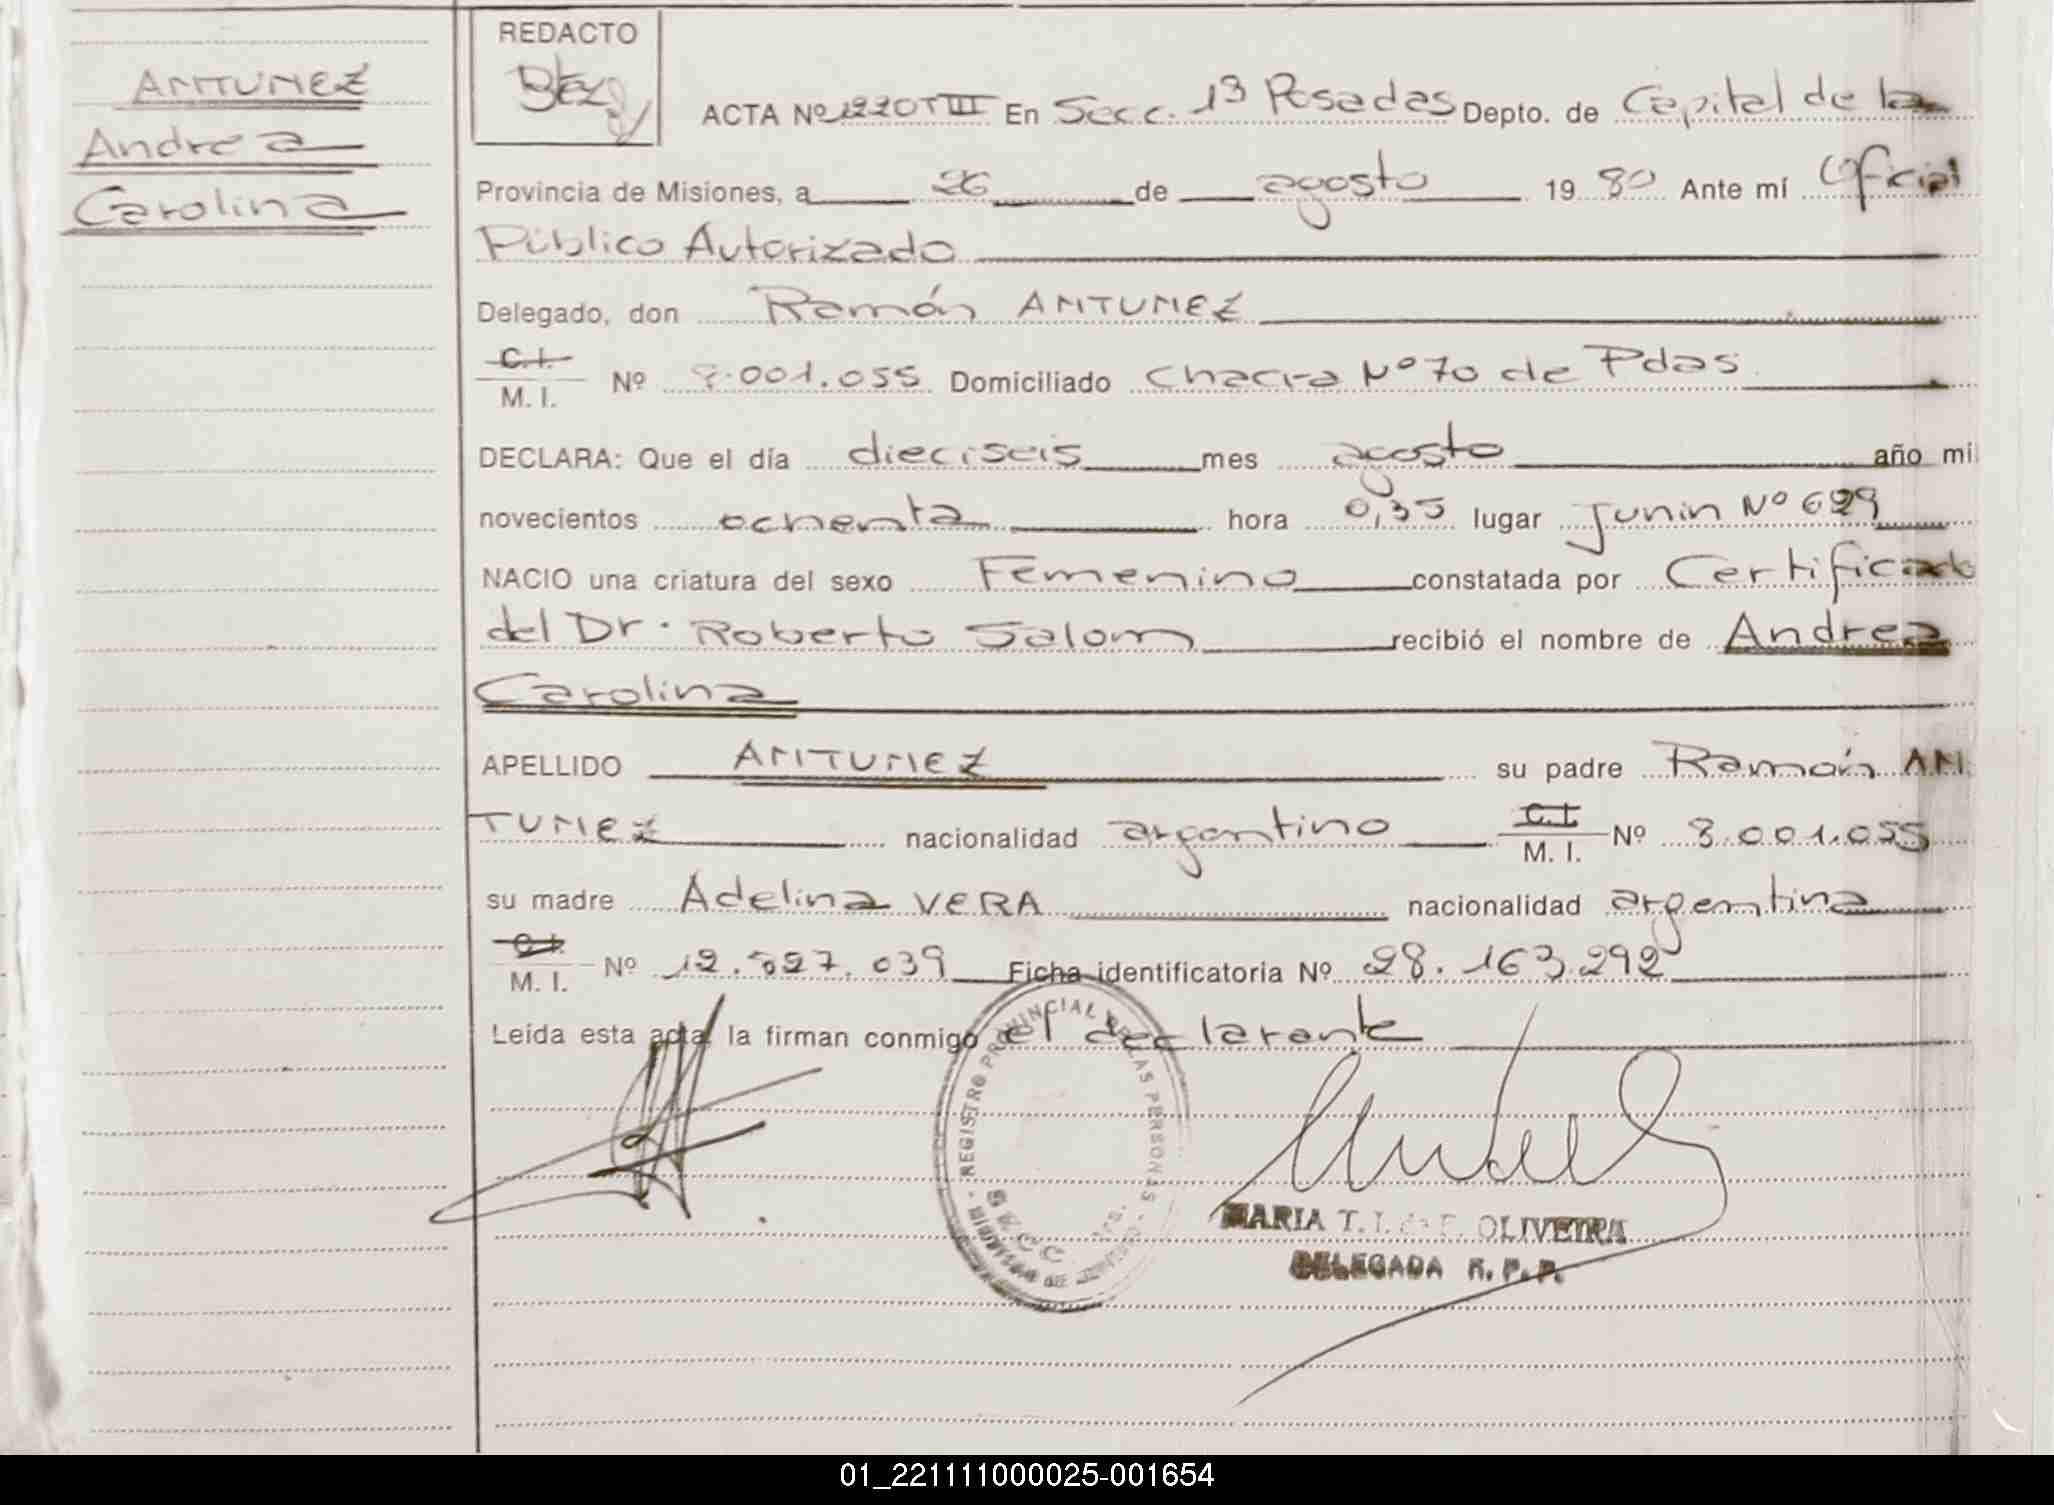 ANTUNEZ
Andrea
Carolina
REDACTO
ACTA Nº 1220 T III En Secc. 1ª Posadas Depto. de Capital de la
Provincia de Misiones, a 26 de agosto 1980 Ante mí Oficial
Público Autorizado
Delegado, don Ramón ANTUNEZ
C.I.
M. I. Nº 8.001.055 Domiciliado Chacra Nº 70 de Pdas
DECLARA: Que el día dieciseis mes agosto año mil
novecientos ochenta hora 0,35 lugar Junin Nº 629
NACIO una criatura del sexo Femenino constatada por Certificado
del Dr. Roberto Salom recibió el nombre de Andrea
Carolina
APELLIDO ANTUNEZ su padre Ramón AN
TUNEZ nacionalidad argentino C.I.
M. I. Nº 8.001.055
su madre Adelina VERA nacionalidad argentina
C.I.
M. I. Nº 12.527.039 Ficha identificatoria Nº 28.163.292
Leída esta acta la firman conmigo el declarante
REGISTRO PROVINCIAL DE LAS PERSONAS
SECC
MARIA T. I. de F. OLIVEIRA
DELEGADA R. P. P.
01_221111000025-001654